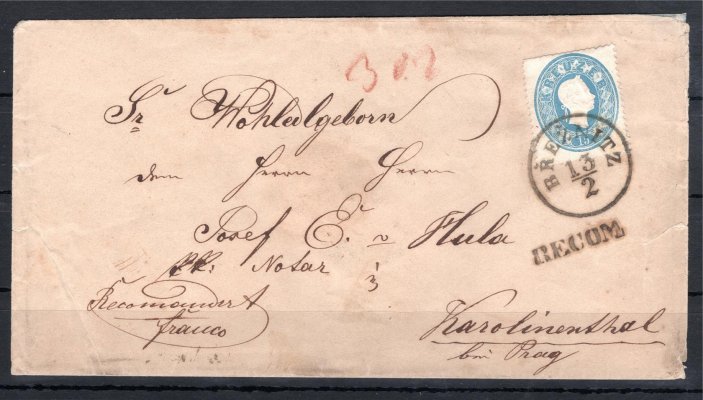 Sr Wohledlgeborn
dem Herrn Herrn
Josef E. v Hula
kk. Notar
in
Recomandert
franco
Karolinenthal
bei Prag
BŘEZNITZ
13/2
RECOM
15